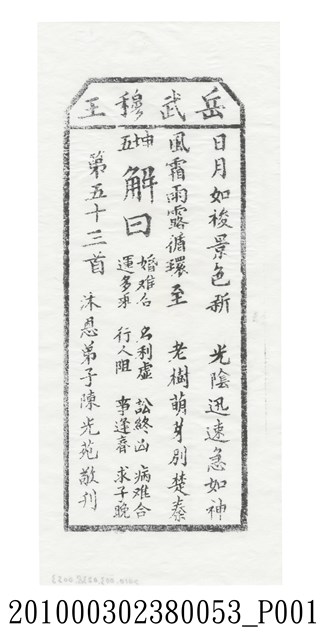 岳武穆王
日月如梭景色新 光陰迅速急如神
風霜雨露循環至 老樹萌芽別楚秦
坤五 解曰
婚难合 名利虛 訟終凶 病难合
運多乖 行人阻 事逢春 求子晚
第五十三首 沐恩弟子陳光苑敬刊
201000302380053_P001